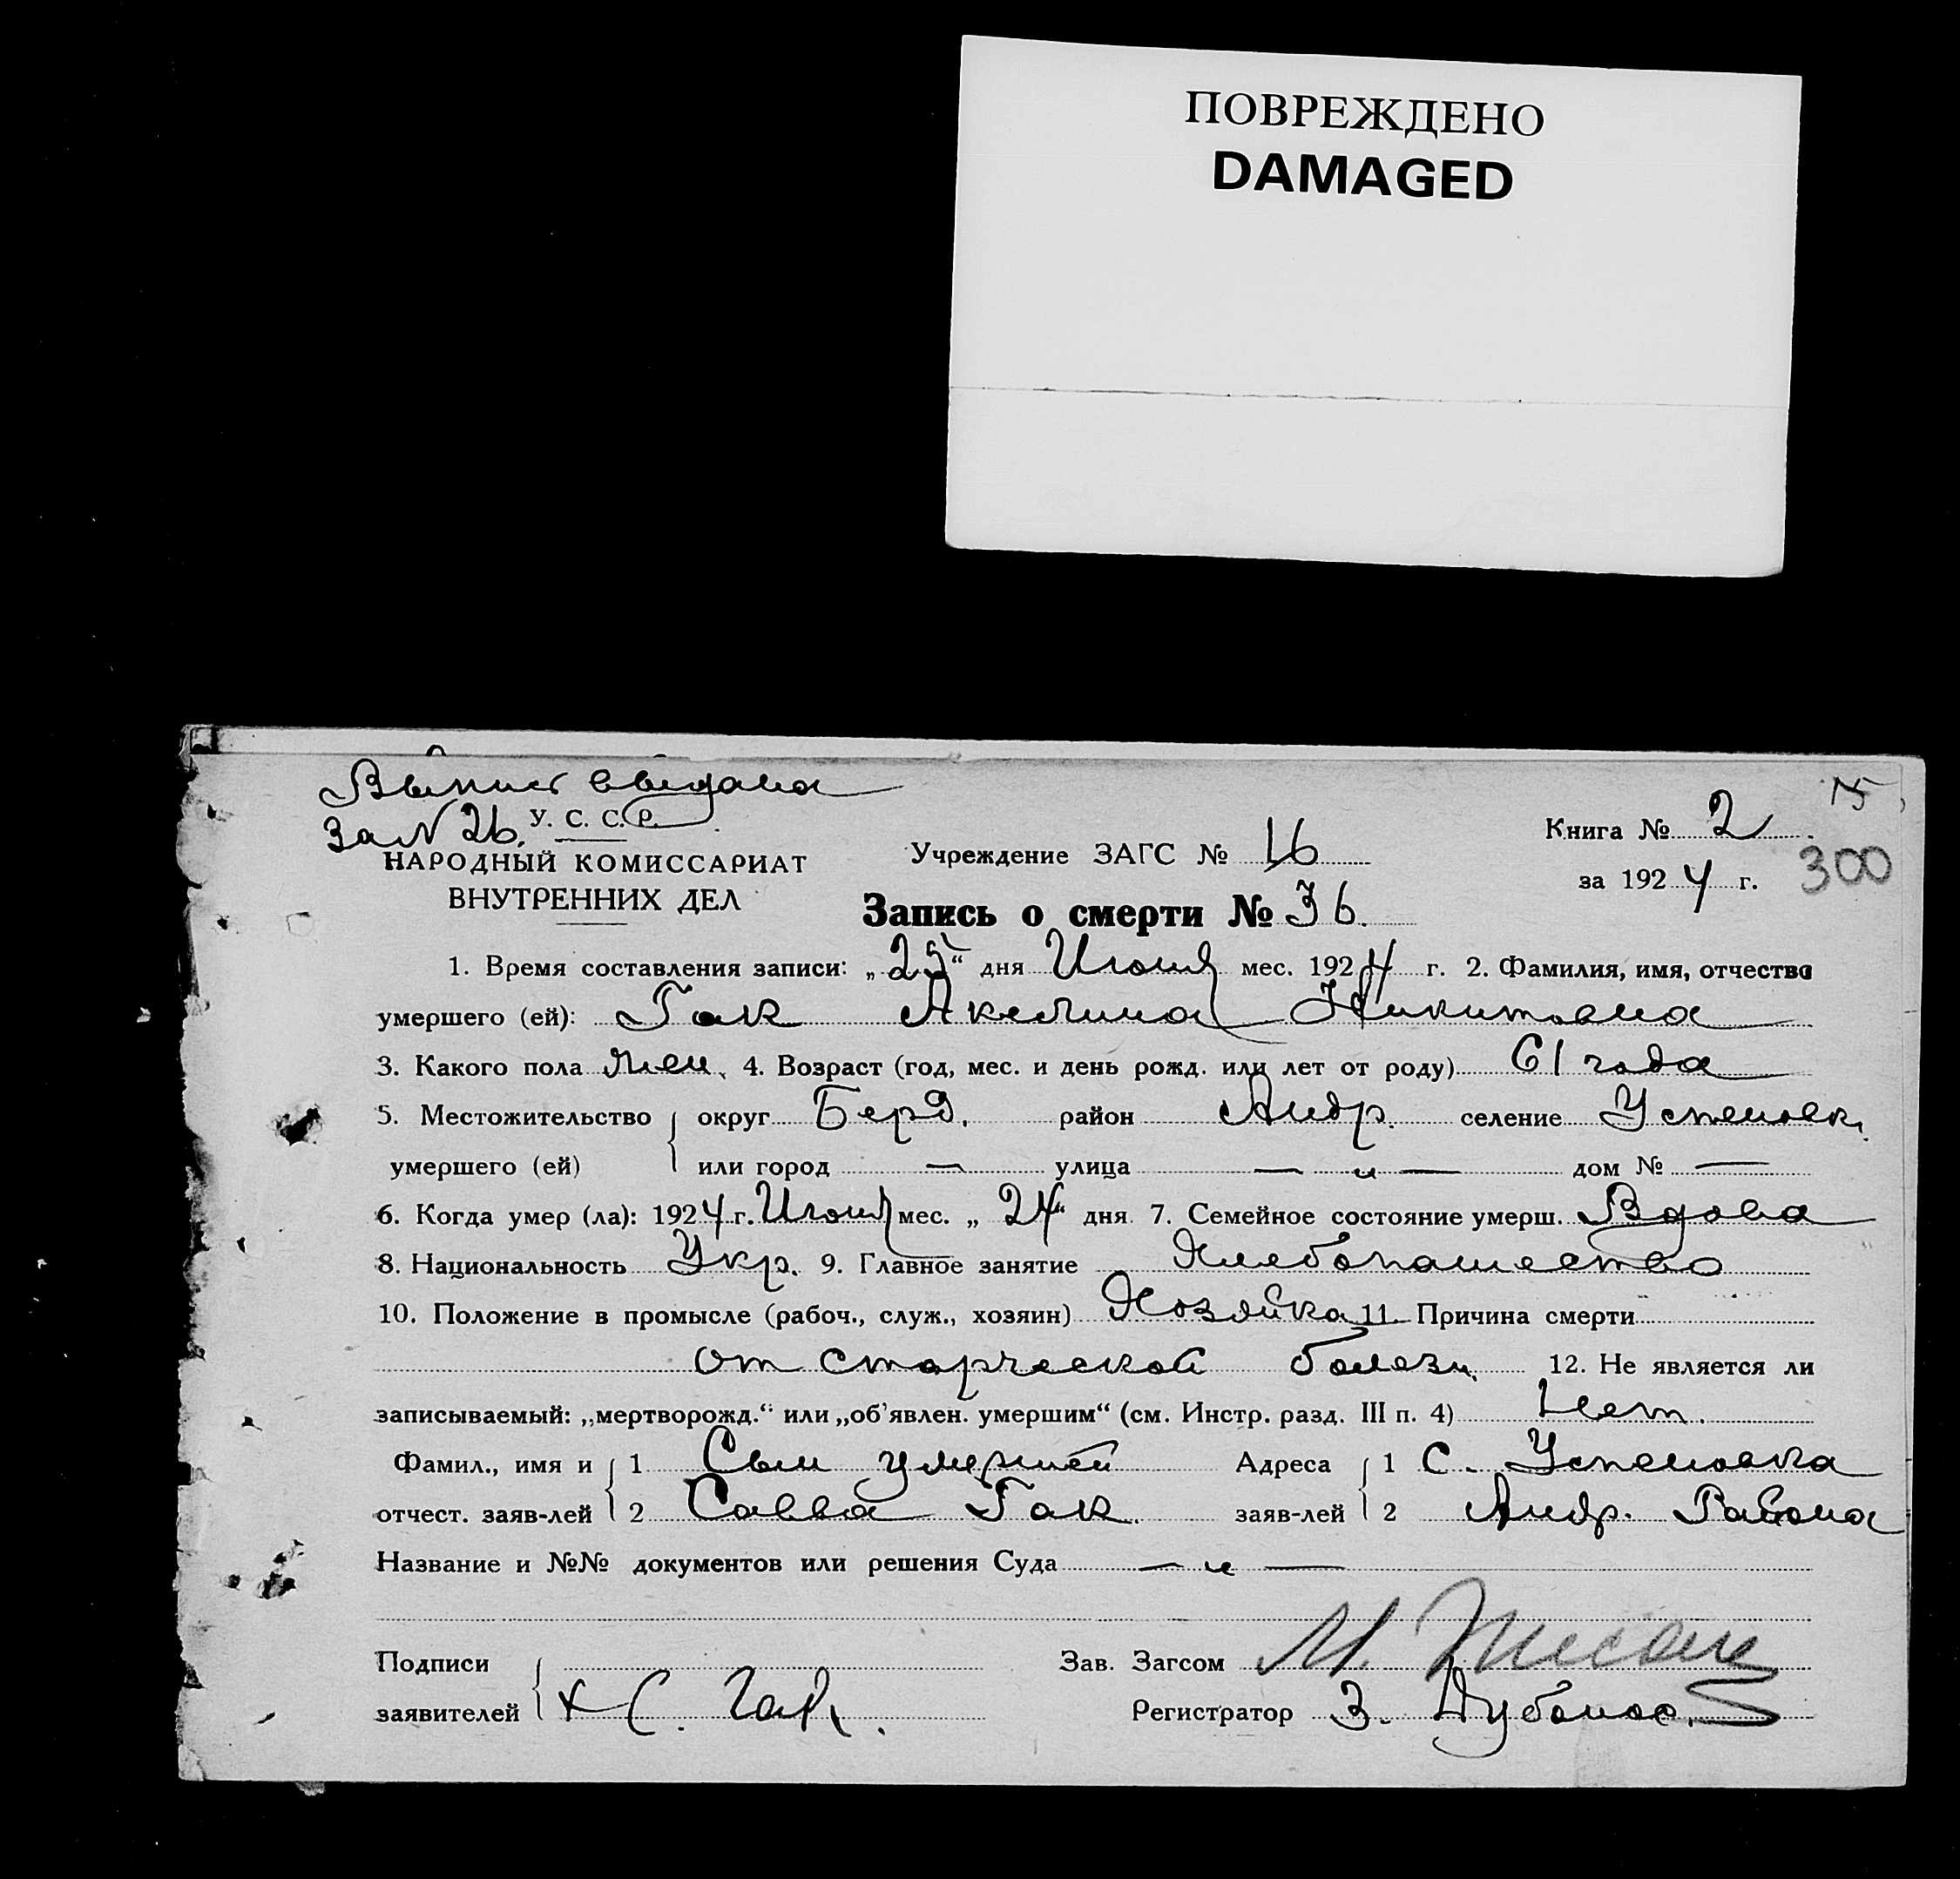 ПОВРЕЖДЕНО
DAMAGED
Выпись выдана
За N 26.
У. С. С. Р.
НАРОДНЫЙ КОМИССАРИАТ
ВНУТРЕННИХ ДЕЛ
Учреждение ЗАГС № 16
Книга № 2
за 1924 г.
300
Запись о смерти № 36.
1. Время составления записи: „25“ дня Июня мес. 1924 г. 2. Фамилия, имя, отчество
умершего (ей): Гак Акелина Никитовна
3. Какого пола жен. 4. Возраст (год, мес. и день рожд. или лет от роду) 61 года
5. Местожительство округ Берд. район Андр. селение Успеновк.
умершего (ей) или город — улица — „ — дом № —
6. Когда умер (ла): 1924 г. Июня мес. „24“ дня 7. Семейное состояние умерш. Вдова
8. Национальность Укр. 9. Главное занятие Хлебопашество
10. Положение в промысле (рабоч., служ., хозяин) Хозяйка 11. Причина смерти
от старческой болезн. 12. Не является ли
записываемый: „мертворожд.“ или „об'явлен. умершим“ (см. Инстр. разд. III п. 4) Нет.
Фамил., имя и 1 Сын умершей Адреса 1 С. Успеновка
отчест. заяв-лей 2 Савва Гак. заяв-лей 2 Андр. Района
Название и №№ документов или решения Суда — „ —
Подписи Зав. Загсом М.
заявителей + С. Гак. Регистратор З.